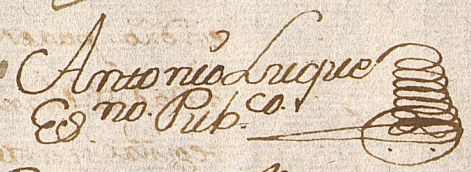 Antonio Luque
Es.no. Pub.co.